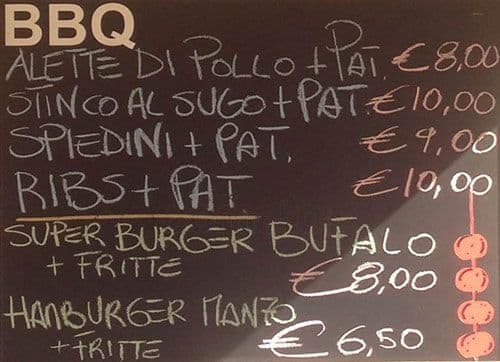 BBQ
ALETTE DI POLLO + PAT. €8,00
STINCO AL SUGO + PAT. €10,00
SPIEDINI + PAT. €9,00
RIBS + PAT €10,00
SUPER BURGER BUFALO
+ FRITTE €8,00
HAMBURGER MANZO
+ FRITTE €6,50